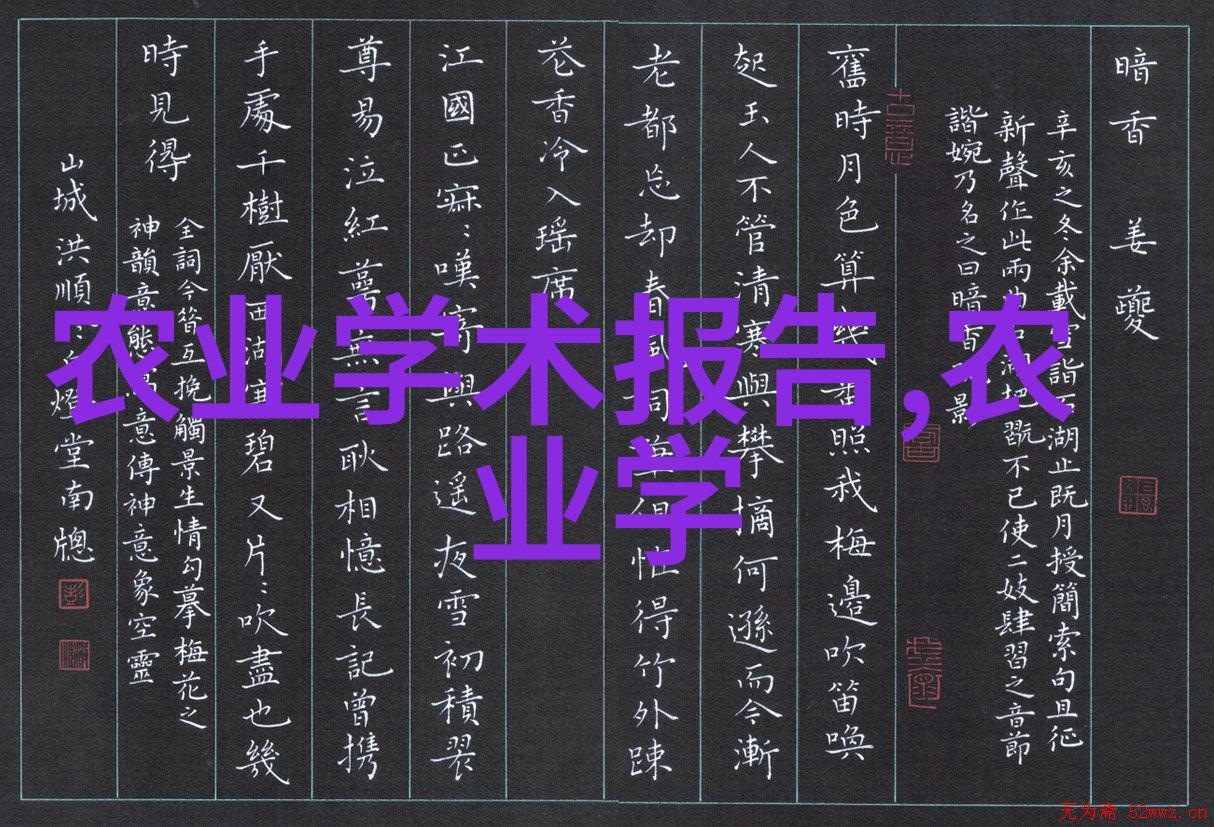 暗香 姜夔
辛亥之冬余載雪詣石湖止既月授簡索句且征
新聲作此兩曲石湖把翫不已使二妓肆習之音節
諧婉乃名之曰暗香 影
古意
舊時月色算幾番照我梅邊吹笛喚
起玉人不管清寒與攀摘何遜而今漸
老都忘却春風詞筆但怪得竹外疎
花香冷入瑶席
江國正寂：嘆寄與路遥夜雪初積翠
尊易泣紅萼無言耿相憶長記曾携
手處千樹壓西湖寒碧又片：吹盡也幾
時見得
全詞今昔互挽觸景生情勾摹梅花之
神韻意態寫意傳神意象空靈
山城洪順 堂南牕
农业学术报告,农
业学
无为斋 52wwz.cn